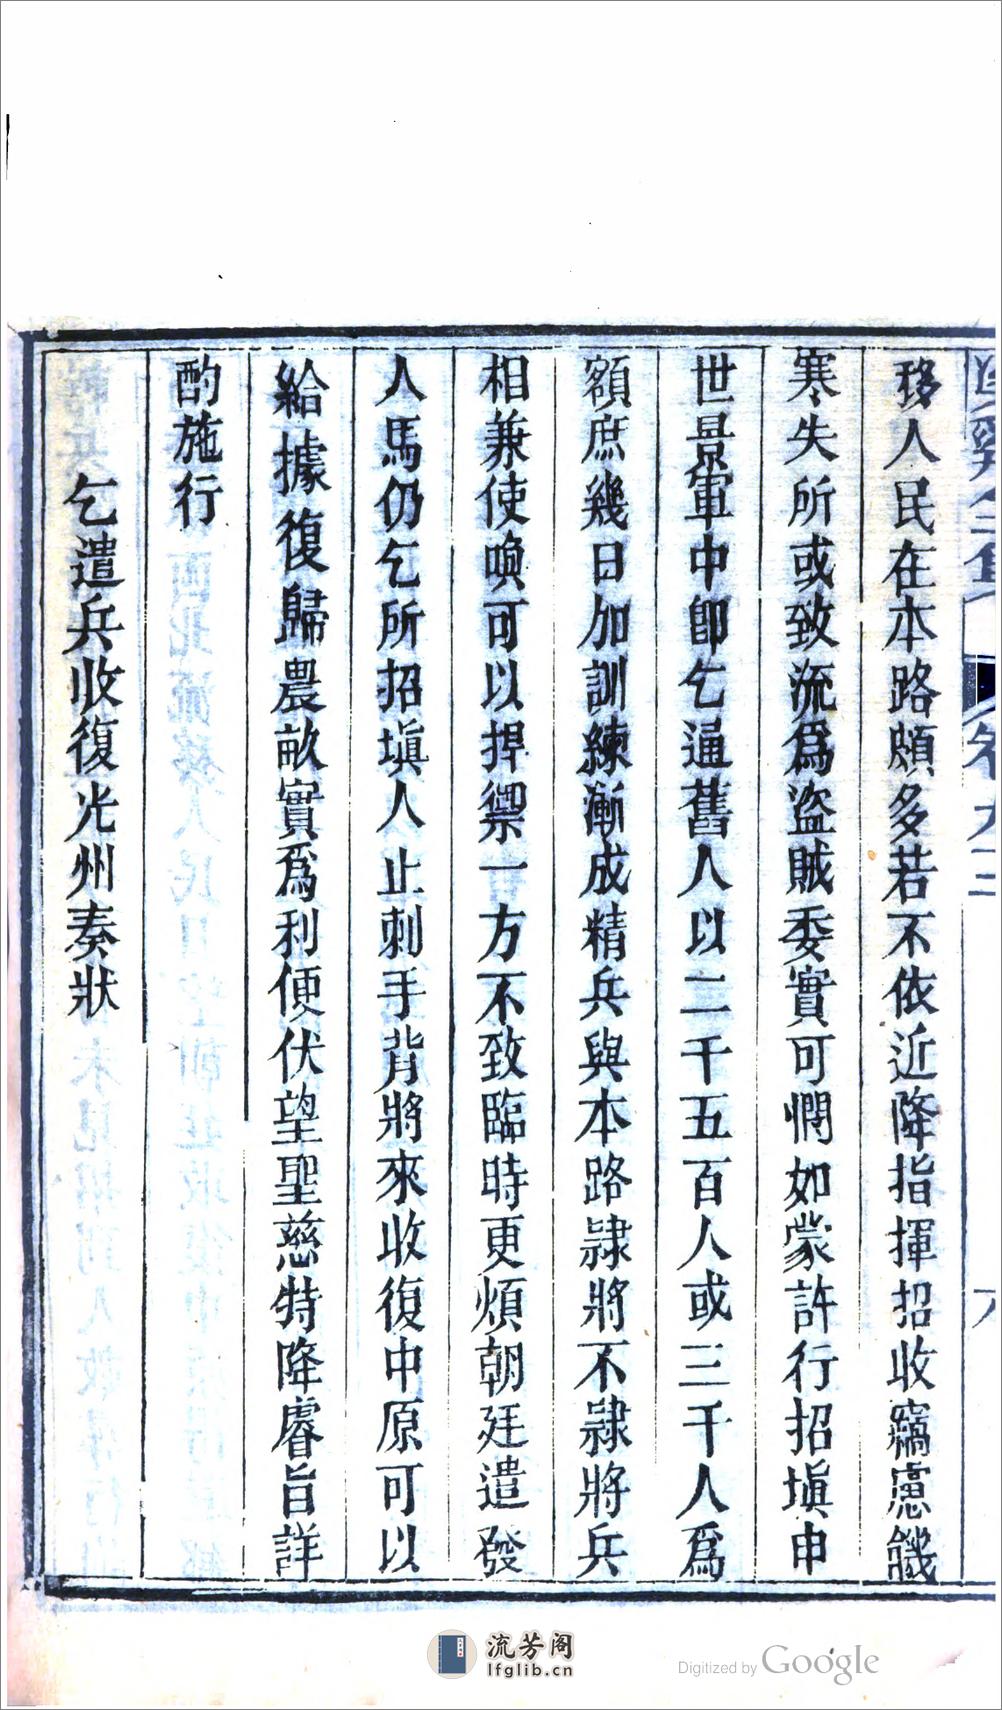 移人民在本路頗多若不依近降指揮招收竊慮饑
寒失所或致流爲盜賊委實可憫如蒙許行招塡申
世景軍中卽乞通舊人以二千五百人或三千人爲
額庶幾日加訓練漸成精兵與本路隷將不隷將兵
相兼使喚可以捍禦一方不致臨時更煩朝廷遣發
人馬仍乞所招塡人止刺手背將來收復中原可以
給據復歸農畝實爲利便伏望聖慈特降睿旨詳
酌施行
乞遣兵收復光州奏狀
流芳阁
lfglib.cn
Digitized by Google